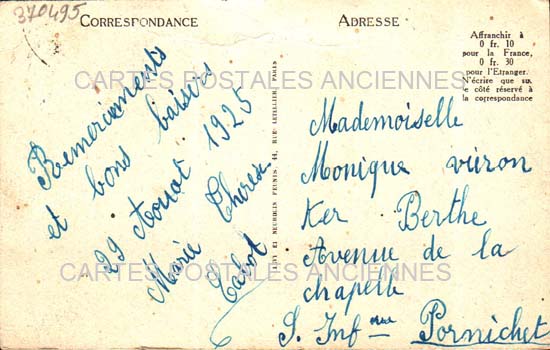 370495
CORRESPONDANCE
ADRESSE
Affranchir à
0 fr. 10
pour la France,
0 fr. 30
pour l'Etranger.
N'écrire que su
le côté réservé à
la correspondance
CARTES POSTALES ANCIENNES
Remerciements
et bons baisers
29 Aouat 1925
Marie Thérèse
Tabot
LEVY ET NEURDEIN REUNIS, 44, RUE LETELLIER, PARIS
Mademoiselle
Monique viron
Ker Berthe
Avenue de la
chapelle
S. Infre Pornichet
CARTES POSTALES ANCIENNES